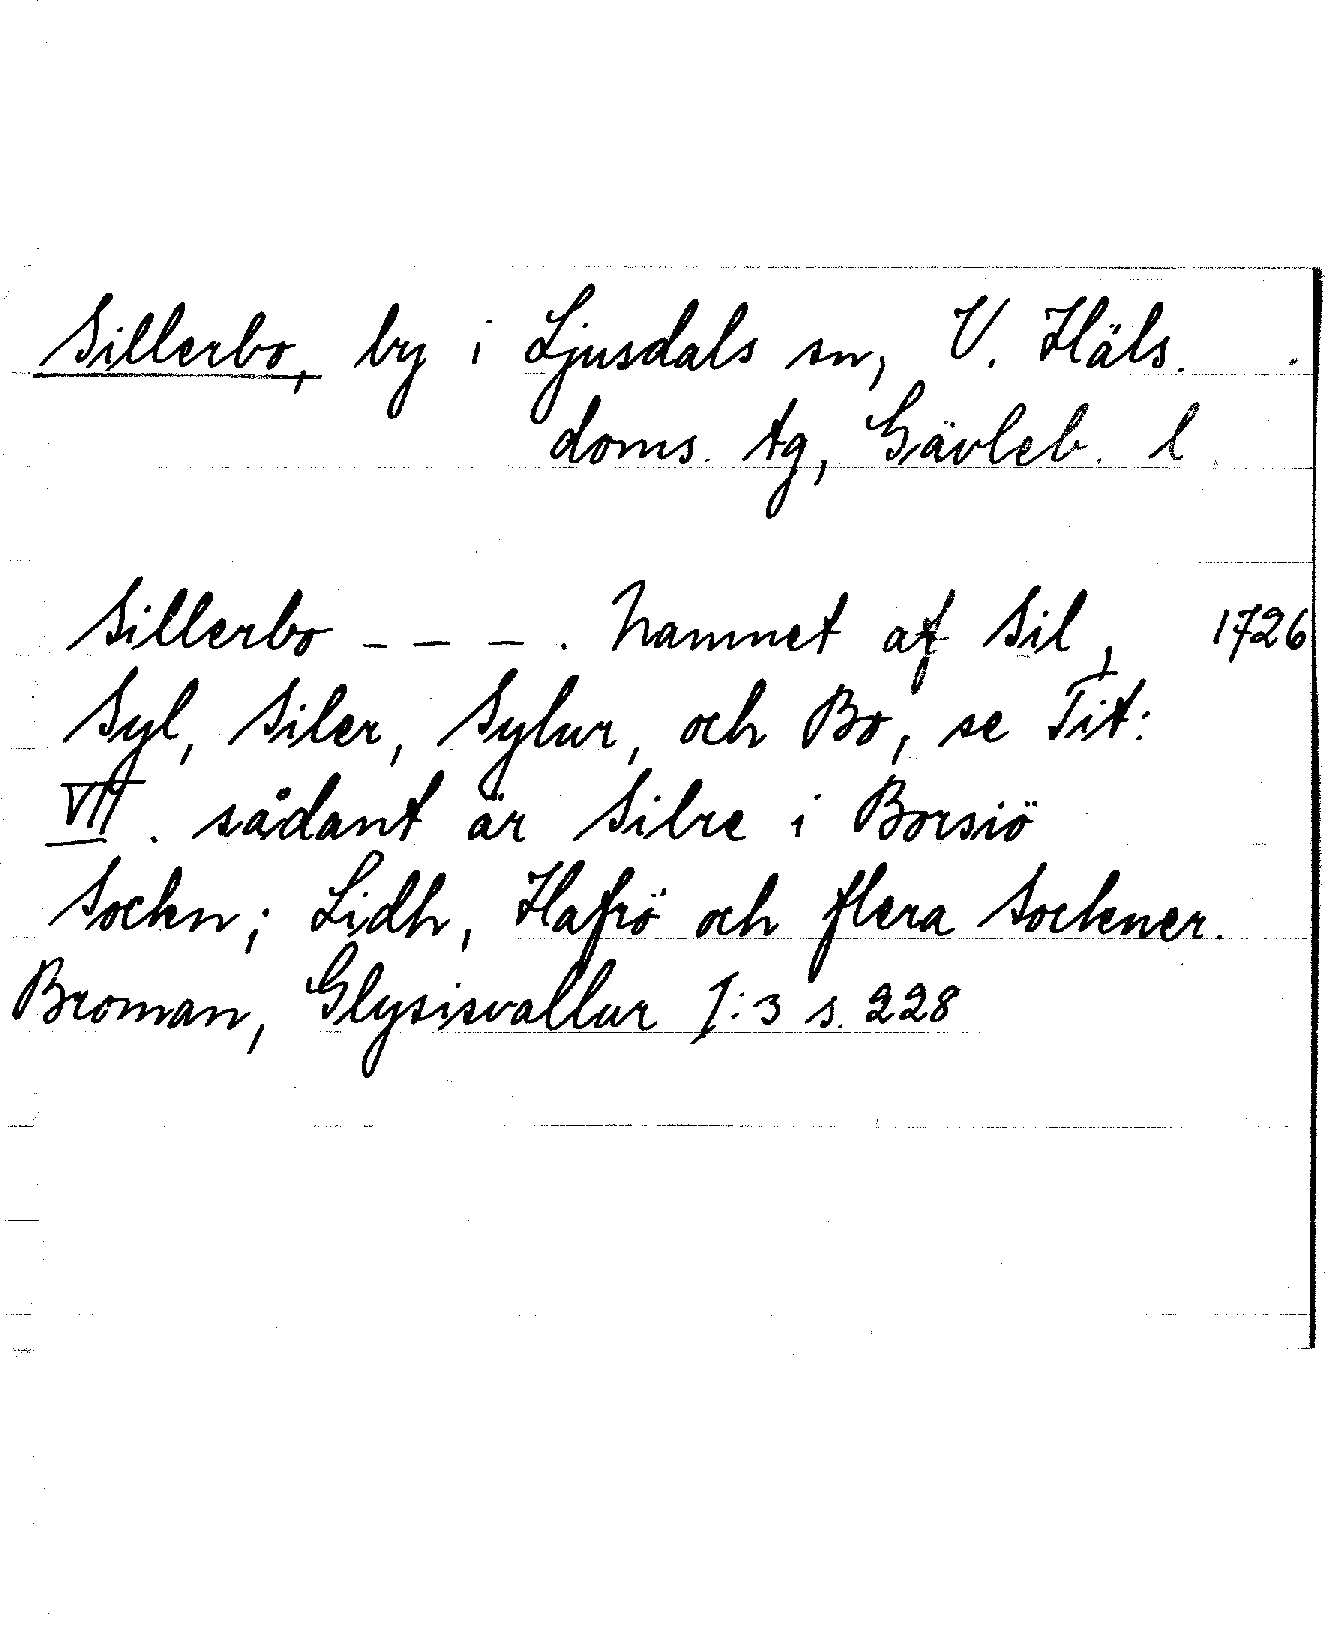 Sillerbo, by i Ljusdals sn, V. Häls.
doms. tg, Gävleb. l
Sillerbo _ _ _ . Namnet af Sil, 1726
Syl, Siler, Sylur, och Bo, se Tit:
VII. sådant är Silre i Borsiö
Sockn; Lidh, Hafrö och flera Sockener.
Broman, Glysisvallur I:3 s. 228